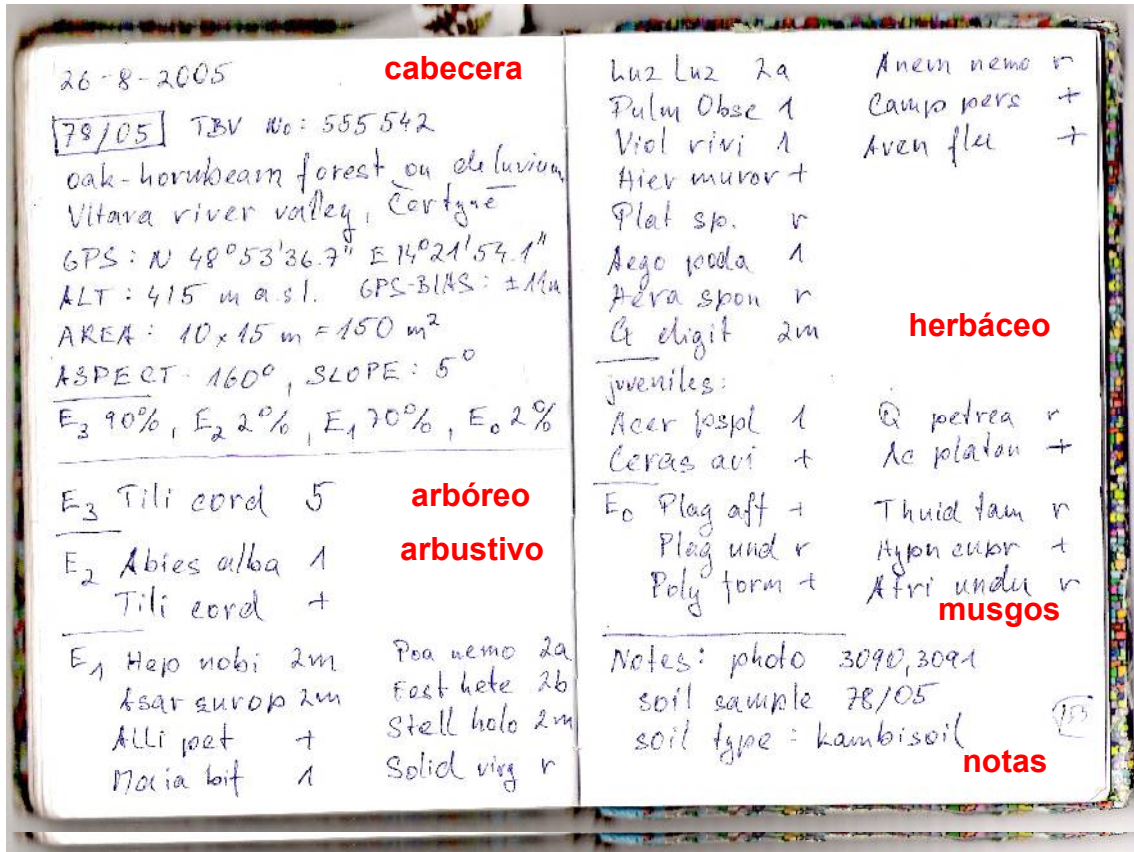 26-8-2005
cabecera
78/05 TBV No: 555542
oak-hornbeam forest on deluvium,
Vltava river valley, Čertyně
GPS: N 48°53'36.7" E 14°21'54.1"
ALT: 415 m a.s.l. GPS-BIAS: ±11m
AREA: 10 x 15 m = 150 m²
ASPECT: 160°, SLOPE: 5°
E₃ 90%, E₂ 2%, E₁ 70%, E₀ 2%
E₃ Tili cord 5
arbóreo
E₂ Abies alba 1
arbustivo
Tili cord +
E₁ Hepo nobi 2m
Asar europ 2m
Alli pet +
Maia bif 1
Poa nemo 2a
Fest hete 2b
Stell holo 2m
Solid virg r
Luz Luz 2a
Pulm Obsc 1
Viol rivi 1
Hier muror +
Plat sp. r
Aego poda 1
Hera spon r
G digit 2m
Anem nemo r
Camp pers +
Aven flu +
herbáceo
juveniles:
Acer pspl 1
Ceras avi +
Q petrea r
Ac platan +
E₀ Plag aff +
Plag und r
Poly form +
Thuid tam r
Hypn cupr +
Atri undu r
musgos
Notes: photo 3090, 3091
soil sample 78/05
soil type: kambisoil
153
notas